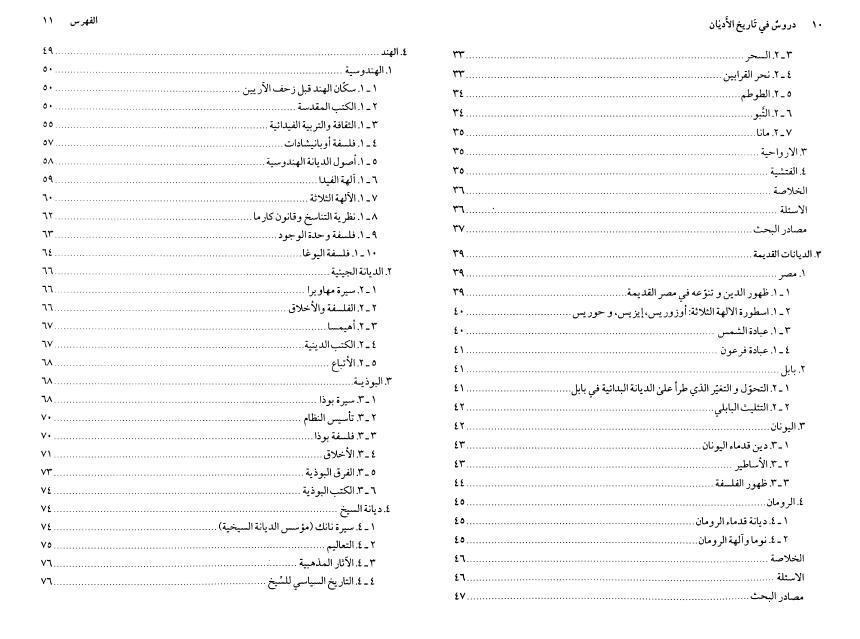 ١٠ دروسٌ في تاريخ الأَديَان
٣ـ٢. السحر ٣٣
٤ـ٢. نحر القرابين ٣٣
٥ـ٢. الطوطم ٣٤
٦ـ٢. التَّبو ٣٤
٧ـ٢. مانا ٣٥
٣. الارواحية ٣٥
٤. الفتشية ٣٥
الخلاصة ٣٦
الاسئلة ٣٦
مصادر البحث ٣٧
٣. الديانات القديمة ٣٩
١. مصر ٣٩
١ـ١. ظهور الدين و تنوّعه في مصر القديمة ٣٩
٢ـ١. اسطورة الالهة الثلاثة: أوزوريس، إيزيس، و حوريس ٤٠
٣ـ١. عبادة الشمس ٤٠
٤ـ١. عبادة فرعون ٤١
٢. بابل ٤١
١ـ٢. التحوّل و التغيّر الذي طرأ على الديانة البدائية في بابل ٤١
٢ـ٢. التثليث البابلي ٤٢
٣. اليونان ٤٢
١ـ٣. دين قدماء اليونان ٤٣
٢ـ٣. الأساطير ٤٣
٣ـ٣. ظهور الفلسفة ٤٤
٤. الرومان ٤٥
١ـ٤. ديانة قدماء الرومان ٤٥
٢ـ٤. نوما و آلهة الرومان ٤٥
الخلاصة ٤٦
الاسئلة ٤٦
مصادر البحث ٤٧
الفهرس ١١
٤. الهند ٤٩
١. الهندوسية ٥٠
١ـ١. سكّان الهند قبل زحف الآريين ٥٠
٢ـ١. الكتب المقدسة ٥٠
٣ـ١. الثقافة والتربية الفيدائية ٥٥
٤ـ١. فلسفة أوبانيشادات ٥٧
٥ـ١. أصول الديانة الهندوسية ٥٨
٦ـ١. آلهة الفيدا ٥٩
٧ـ١. الآلهة الثلاثة ٦٠
٨ـ١. نظرية التناسخ وقانون كارما ٦٢
٩ـ١. فلسفة وحدة الوجود ٦٣
١٠ـ١. فلسفة اليوغا ٦٤
٢. الديانة الجينية ٦٦
١ـ٢. سيرة مهاويرا ٦٦
٢ـ٢. الفلسفة والأخلاق ٦٦
٣ـ٢. أهيمسا ٦٧
٤ـ٢. الكتب الدينية ٦٧
٥ـ٢. الأتباع ٦٨
٣. البوذية ٦٨
١ـ٣. سيرة بوذا ٦٨
٢ـ٣. تأسيس النظام ٧٠
٣ـ٣. فلسفة بوذا ٧٠
٤ـ٣. الأخلاق ٧١
٥ـ٣. الفرق البوذية ٧٣
٦ـ٣. الكتب البوذية ٧٤
٤. ديانة السيخ ٧٤
١ـ٤. سيرة نانك (مؤسس الديانة السيخية) ٧٤
٢ـ٤. التعاليم ٧٥
٣ـ٤. الآثار المذهبية ٧٦
٤ـ٤. التاريخ السياسي للسِّيخ ٧٦